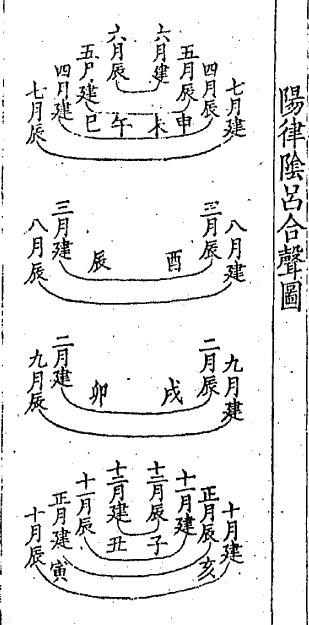 陽律陰呂合聲圖
七月建
四月辰
五月辰
六月建
六月辰
五月建
四月建
七月辰
申
未
午
巳
八月建
三月辰
酉
辰
三月建
八月辰
九月建
二月辰
戌
卯
二月建
九月辰
十月建
正月辰
十一月建
十二月辰
十二月建
十一月辰
正月建
十月辰
亥
子
丑
寅